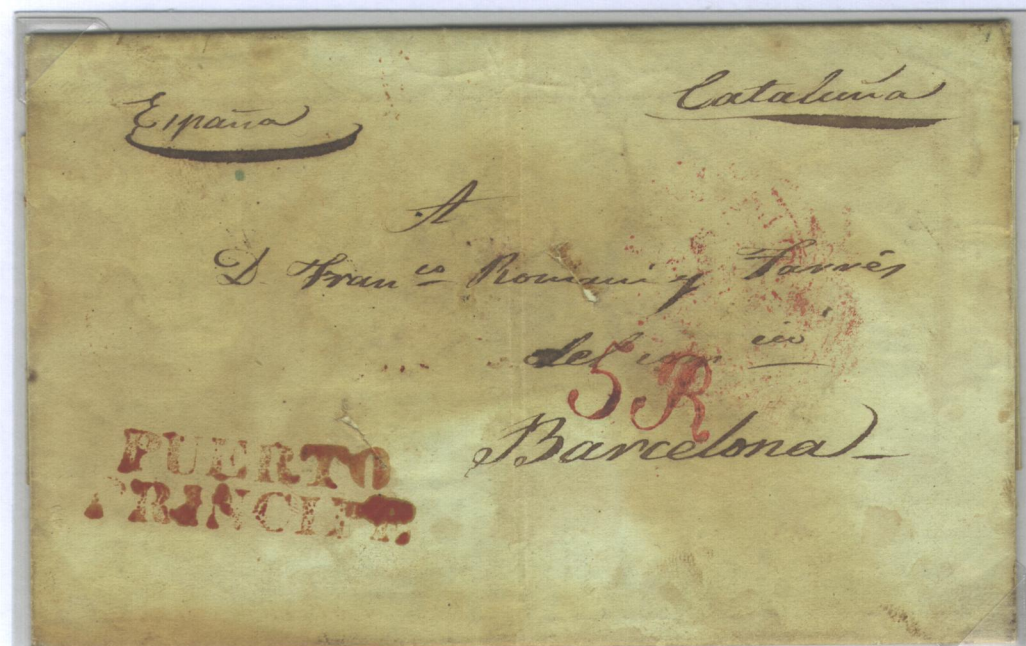 España
Cataluña
A
D Franco Romaní y Farrés
del com cio
5 R
Barcelona
PUERTO
PRINCIPE